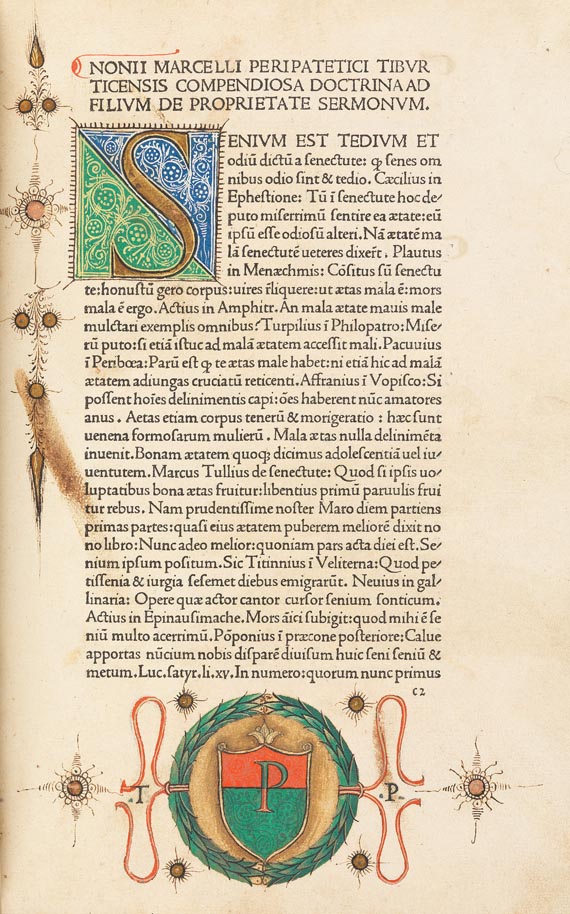 NONII MARCELLI PERIPATETICI TIBVR
TICENSIS COMPENDIOSA DOCTRINA AD
FILIVM DE PROPRIETATE SERMONVM.
SENIVM EST TEDIVM ET
odiũ dictũ a senectute: ꝙ senes om
nibus odio sint & tedio. Cæcilius in
Ephestione: Tũ ĩ senectute hoc de⸗
puto miserrimũ sentire ea ætate: eũ
ipsũ esse odiosũ alteri. Nã ætatẽ ma
lã senectutẽ ueteres dixert̃. Plautus
in Menæchmis: Cõsitus sũ senectu
te: honustũ gero corpus: uires ĩliquere: ut ætas mala ẽ: mors
mala ẽ ergo. Actius in Amphitr. An mala ætate mauis male
mulctari exemplis omnibus? Turpilius ĩ Philopatro: Mise⸗
rũ puto: si etiã istuc ad malã ætatem accessit mali. Pacuuius
ĩ Peribœa: Parũ est ꝙ te ætas male habet: ni etiã hic ad malã
ætatem adiungas cruciatũ reticenti. Affranius ĩ Vopisco: Si
possent hoĩes delinimentis capi: ões haberent nũc amatores
anus. Aetas etiam corpus tenerũ & morigeratio: hæc sunt
uenena formosarum mulierũ. Mala ætas nulla delinimẽta
inuenit. Bonam ætatem quoqꝫ dicimus adolescentiã uel iu⸗
uentutem. Marcus Tullius de senectute: Quod si ipsis uo⸗
luptatibus bona ætas fruitur: libentius primũ paruulis frui
tur rebus. Nam prudentissime noster Maro diem partiens
primas partes: quasi eius ætatem puberem meliorẽ dixit no
no libro: Nunc adeo melior: quoniam pars acta diei est. Se⸗
nium ipsum positum. Sic Titinnius ĩ Veliterna: Quod pe⸗
tissenia & iurgia sesemet diebus emigrarũt. Neuius in gal⸗
linaria: Opere quæ actor cantor cursor senium sonticum.
Actius in Epinausimache. Mors ãici subigit: quod mihi ẽ se
niũ multo acerrimũ. Põponius ĩ præcone posteriore: Calue
apportas nũcium nobis disparẽ diuisum huic seni seniũ &
metum. Luc. satyr. li. xv. In numero: quorum nunc primus
c2
.T.
P
.P.